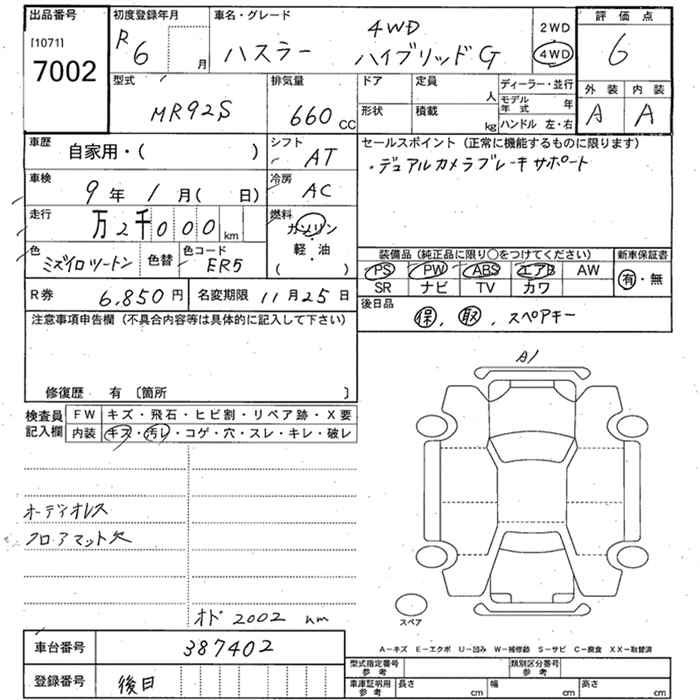 出品番号 初度登録年月 車名・グレード 評価点
[1071] 7002 R 6 月 ハスラー 4WD ハイブリッドG 2WD 4WD 6
型式 排気量 ドア 定員 人 ディーラー・並行 外装 内装
MR92S 660 CC 形状 積載 kg モデル年式 年 ハンドル 左・右 A A
車歴 自家用・( ) シフト AT セールスポイント (正常に機能するものに限ります)
・デュアルカメラブレーキサポート
車検 9年 1月( 日) 冷房 AC
走行 万2千000 km 燃料 ガソリン 軽・油 ( )
色 ミズイロツートン 色替 色コード ER5
装備品(純正品に限り○をつけてください) 新車保証書
PS PW ABS エアB AW 有・無
SR ナビ TV カワ
R券 6,850円 名変期限 11月25日
後日品 保, 取, スペアキー
注意事項申告欄(不具合内容等は具体的に記入して下さい)
修復歴 有 〔箇所 〕
A1
検査員記入欄 FW キズ・飛石・ヒビ割・リペア跡・X要
内装 キズ・汚レ・コゲ・穴・スレ・キレ・破レ
オーディオレス
フロアマット欠
オド 2002 km
スペア
A−キズ E−エクボ U−凹み W−補修跡 S−サビ C−腐食 XX−取替済
車台番号 387402
登録番号 後日
型式指定番号 参考 類別区分番号 参考
車庫証明用 参考 長さ cm 幅 cm 高さ cm